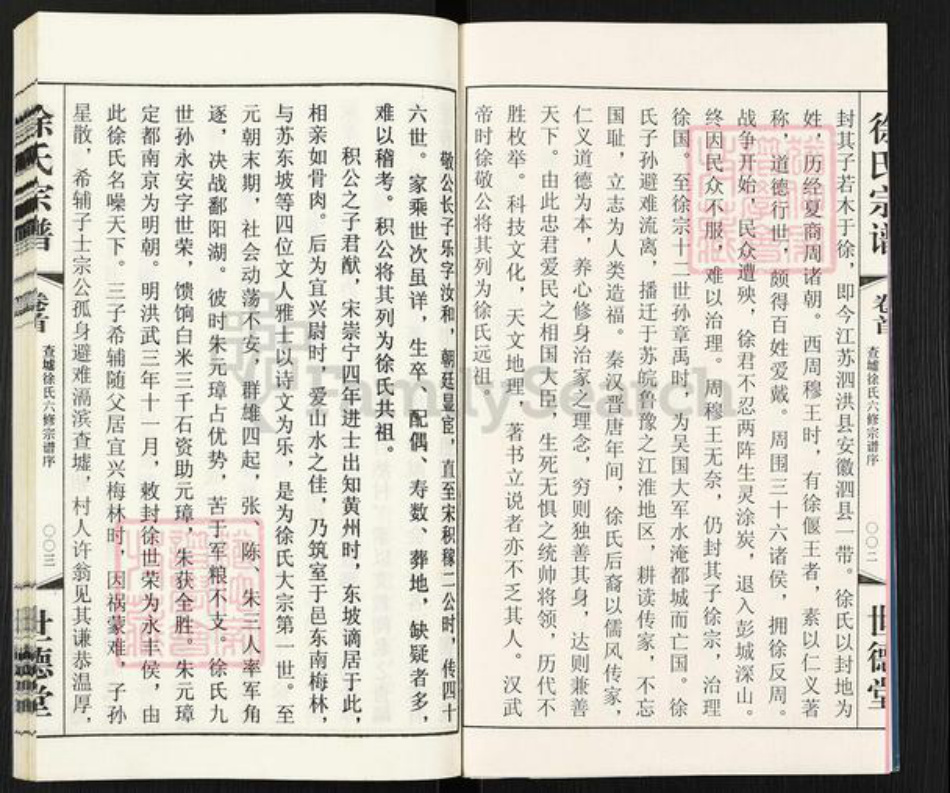 徐氏宗谱
卷首
查墟徐氏六修宗谱序
〇〇二
世德堂
封其子若木于徐，即今江苏泗洪县安徽泗县一带。徐氏以封地为
姓，历经夏商周诸朝。西周穆王时，有徐偃王者，素以仁义著
称，道德行世，颇得百姓爱戴。周围三十六诸侯，拥徐反周。
战争开始，民众遭殃，徐君不忍两阵生灵涂炭，退入彭城深山。
终因民众不服，难以治理。周穆王无奈，仍封其子徐宗，治理
徐国。至徐宗十二世孙章禹时，为吴国大军水淹都城而亡国。徐
氏子孙避难流离，播迁于苏皖鲁豫之江淮地区，耕读传家，不忘
国耻，立志为人类造福。秦汉晋唐年间，徐氏后裔以儒风传家，
仁义道德为本，养心修身治家之理念，穷则独善其身，达则兼善
天下。由此忠君爱民之相国大臣，生死无惧之统帅将领，历代不
胜枚举。科技文化，天文地理，著书立说者亦不乏其人。汉武
帝时徐敬公将其列为徐氏远祖。
敬公长子乐字汝和，朝廷显宦，直至宋积稼二公时，传四十
六世。家乘世次虽详，生卒、配偶、寿数、葬地，缺疑者多，
难以稽考。积公将其列为徐氏共祖。
积公之子君猷，宋崇宁四年进士出知黄州时，东坡谪居于此，
相亲如骨肉。后为宜兴尉时，爱山水之佳，乃筑室于邑东南梅林，
与苏东坡等四位文人雅士以诗文为乐，是为徐氏大宗第一世。至
元朝末期，社会动荡不安，群雄四起，张、陈、朱三人率军角
逐，决战鄱阳湖。彼时朱元璋占优势，苦于军粮不支。徐氏九
世孙永安字世荣，馈饷白米三千石资助元璋，朱获全胜。朱元璋
定都南京为明朝。明洪武三年十一月，敕封徐世荣为永丰侯，由
此徐氏名噪天下。三子希辅随父居宜兴梅林时，因祸蒙难，子孙
星散，希辅子士宗公孤身避难滆滨查墟，村人许翁见其谦恭温厚，
徐氏宗谱
卷首
查墟徐氏六修宗谱序
〇〇三
世德堂
FamilySearch